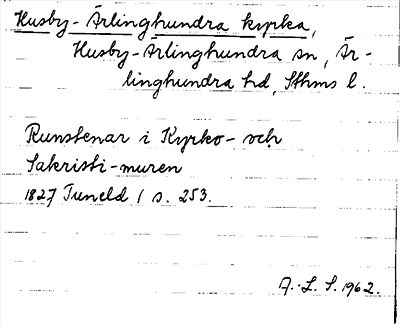 Husby-Ärlinghundra kyrka,
Husby-Ärlinghundra sn, Är-
linghundra hd, Sthms l.
Runstenar i Kyrko- och
Sakristi-muren
1827 Tuneld 1 s. 253.
A.-L. S. 1962.